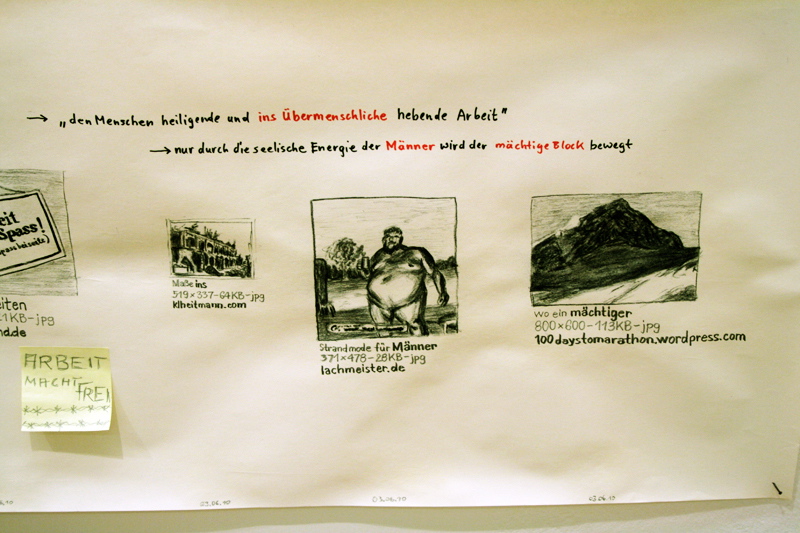 → „den Menschen heiligende und ins Übermenschliche hebende Arbeit"
→ nur durch die seelische Energie der Männer wird der mächtige Block bewegt
eit
Spass!
spass beiseite)
eiten
1KB-jpg
nd.de
Maße ins
519×337-64KB-jpg
klheitmann.com
Strandmode für Männer
371×478-28KB-jpg
lachmeister.de
wo ein mächtiger
800×600-113KB-jpg
100daystomarathon.wordpress.com
ARBEIT
MACHT
FREI
03.06.10
03.06.10
03.06.10